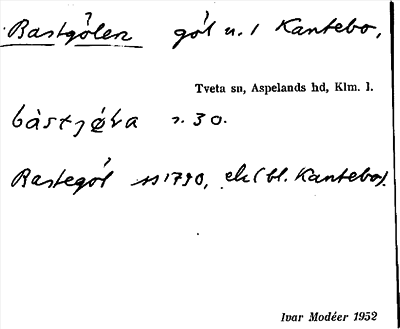 Bastgölen göl n. 1 Kantebo,
Tveta sn, Aspelands hd, Klm. l.
bàstjø̀ɫa s. 30.
Bastegöl 1790, ek (bl. Kantebo).
Ivar Modéer 1952